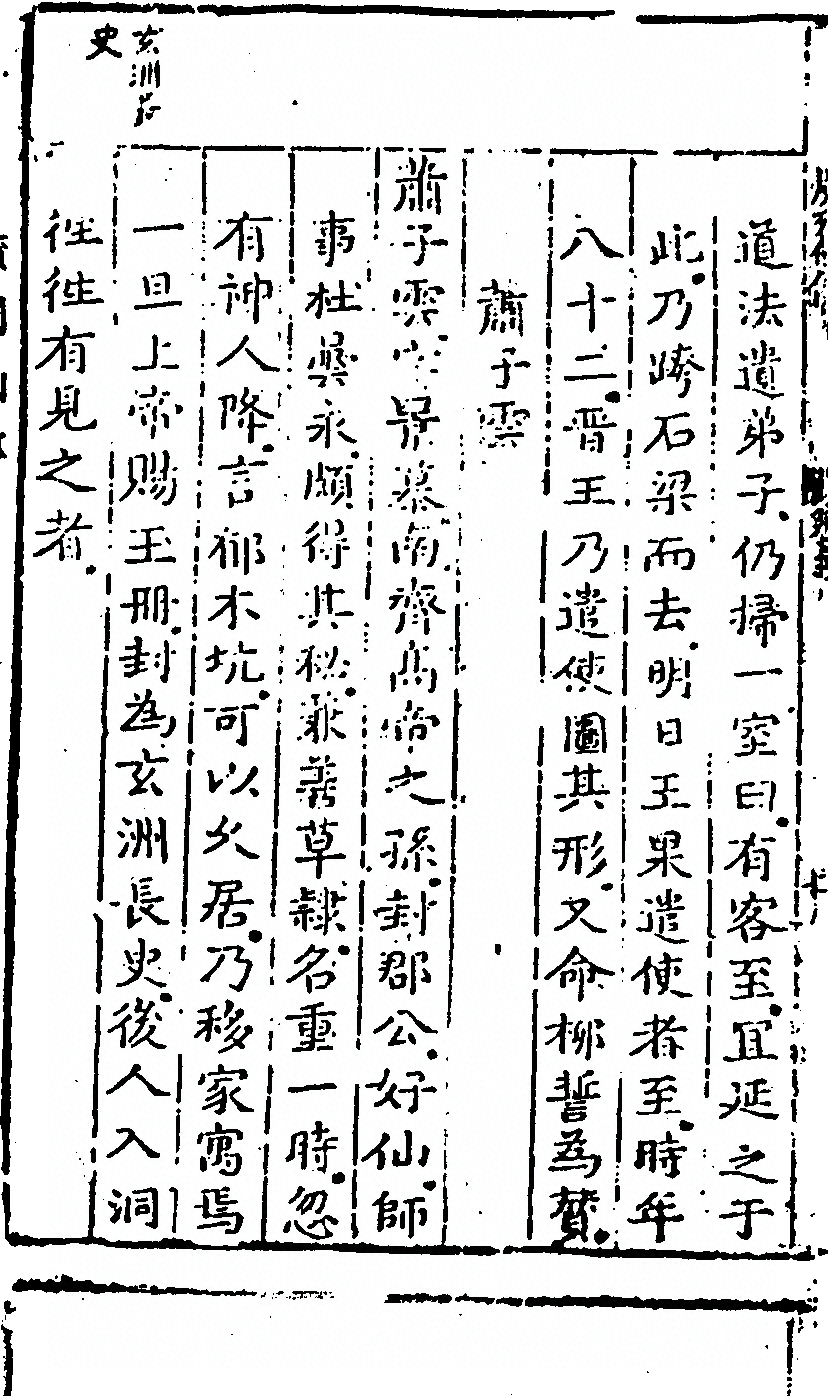 道法遺弟子仍掃一室曰有客至宜延之于
此乃跨石梁而去明日王果遣使者至時年
八十二晉王乃遣使圖其形又命柳䛒為贊
蕭子雲
蕭子雲字景慕南齊高帝之孫封郡公好仙師
事杜曇永頗得其秘兼善草隸名重一時忽
有神人降言郁木坑可以久居乃移家寓焉
一旦上帝賜玉冊封為玄洲長史後人入洞
往往有見之者
玄洲長
史